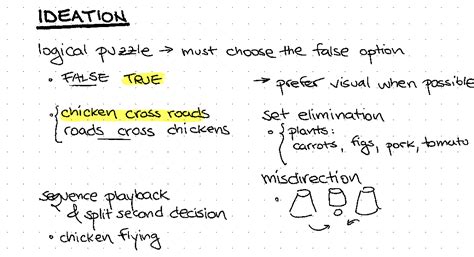 IDEATION
logical puzzle → must choose the false option
• FALSE TRUE
→ prefer visual when possible
• { chicken cross roads
roads cross chickens
set elimination
• { plants:
carrots, figs, pork, tomato
sequence playback
& split second decision
• chicken flying
misdirection